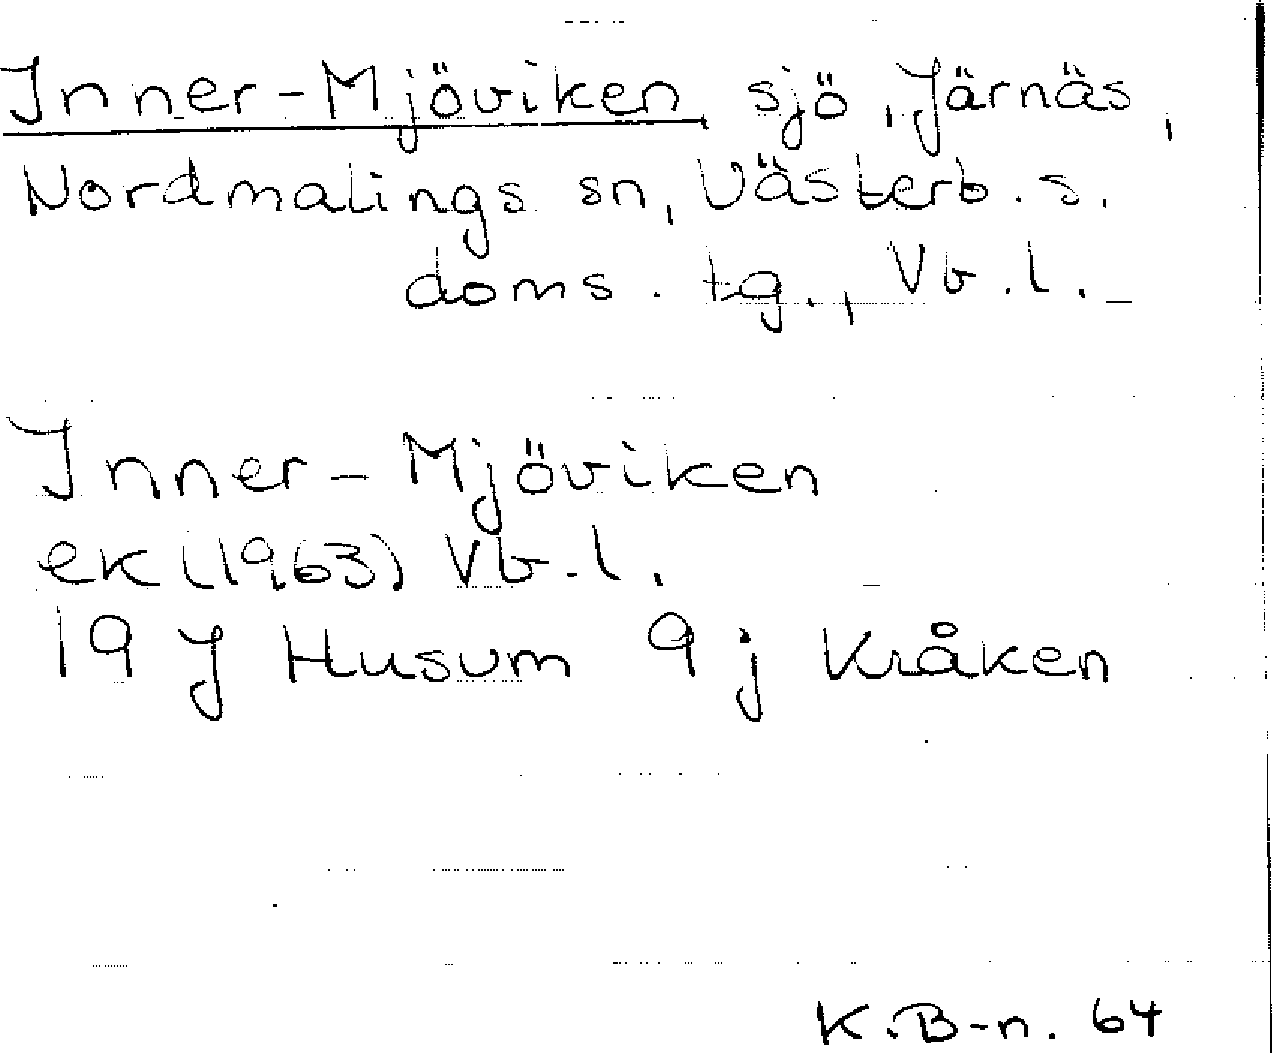 Inner-Mjöviken, sjö, Järnäs,
Nordmalings sn, Västerb. s.
doms. tg., Vb. l.
Inner-Mjöviken
ek (1963) Vb. l.
19 J Husum 9 j Kråken
K. B-n. 64